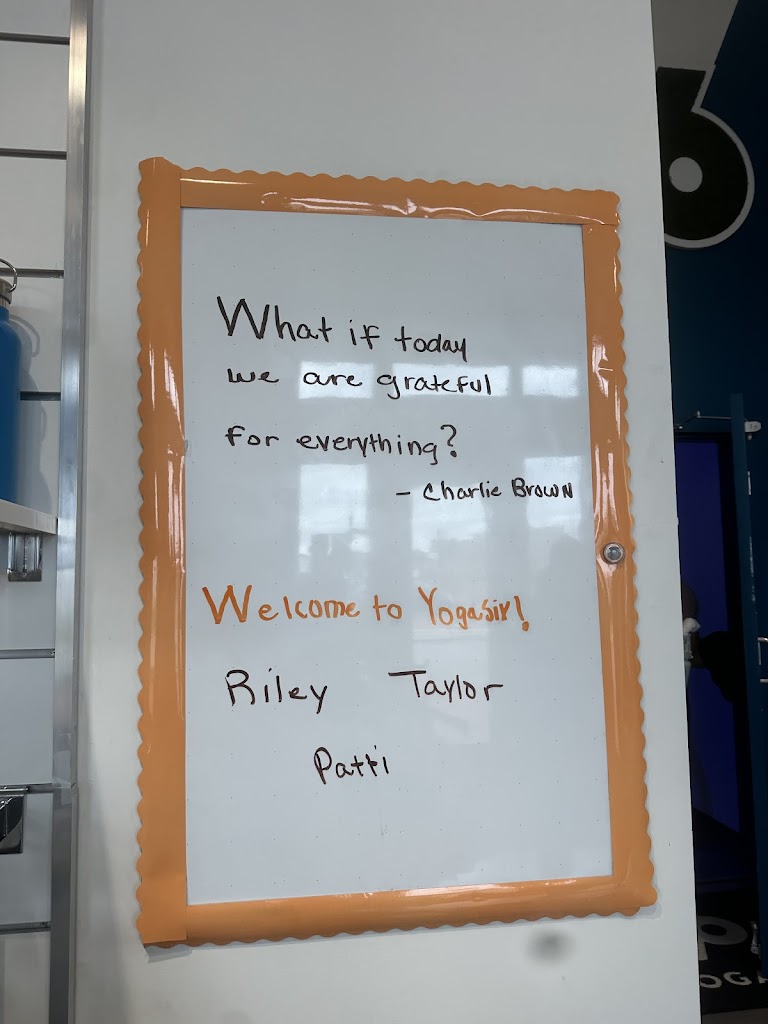 What if today
we are grateful
for everything?
- Charlie Brown
Welcome to YogaSix!
Riley Taylor
Patti
6